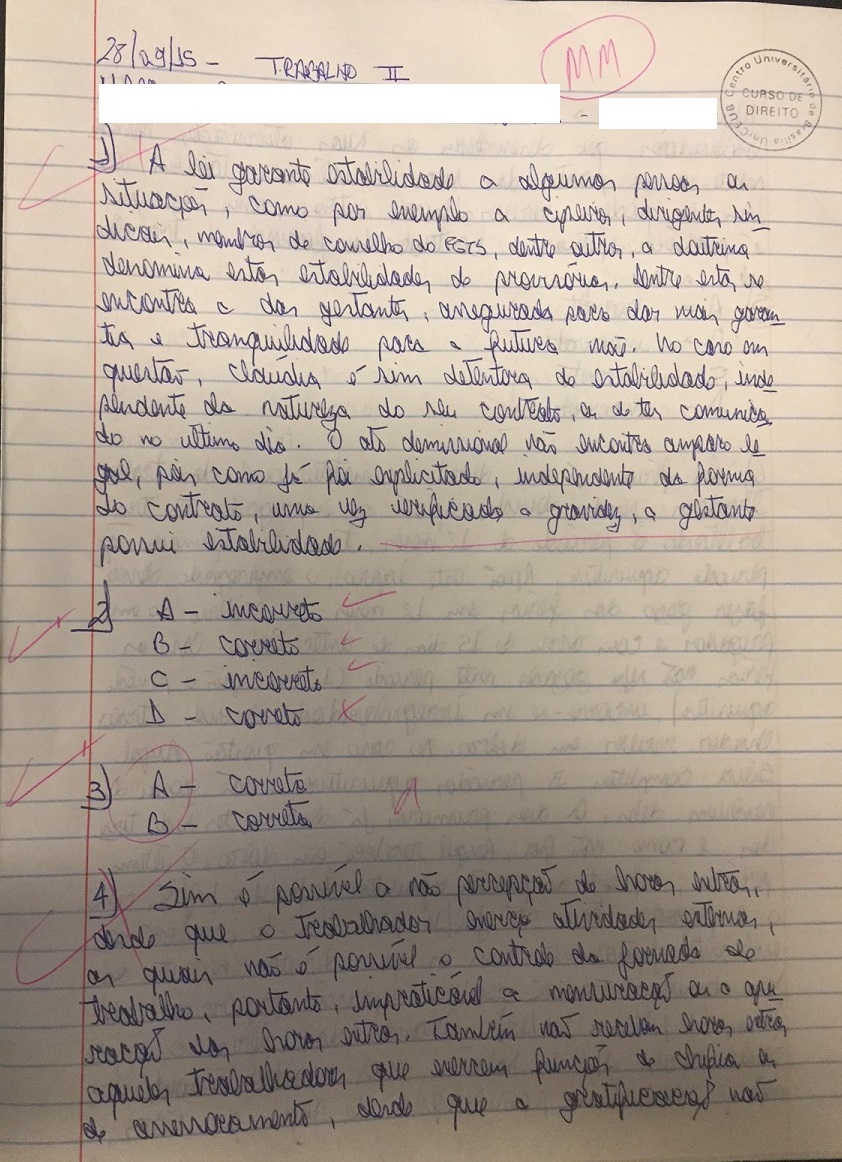 28/09/15 - TRABALHO II
MM
Centro Universitário de Brasília UniCEUB
CURSO DE
DIREITO
1) A lei garante estabilidade a algumas pessoas ou
situações, como por exemplo a cipeiros, dirigentes sin
dicais, membros de conselho do FGTS, dentre outros, a doutrina
denomina estas estabilidades de provisórias. Dentre estas se
encontra a das gestantes, assegurada para dar mais garan
tia e tranquilidade para a futura mãe. No caso em
questão, Cláudia é sim detentora de estabilidade, inde
pendente da natureza do seu contrato, ou de ter comunica
do no ultimo dia. O ato demissional não encontra amparo le
gal, pois como já foi explicitado, independente da forma
do contrato, uma vez verificada a gravidez, a gestante
possui estabilidade.
2) A - incorreto
B - correto
C - incorreto
D - correto
3) A - correta
B - correta
4) Sim é possível a não percepção de horas extras,
desde que o trabalhador exerça atividades externas,
as quais não é possível o controle da jornada de
trabalho, portanto, impraticável a mensuração ou a apu
ração das horas extras. Também não recebem horas extras
aqueles trabalhadores que exercem função de chefia ou
de assessoramento, desde que a gratificação não